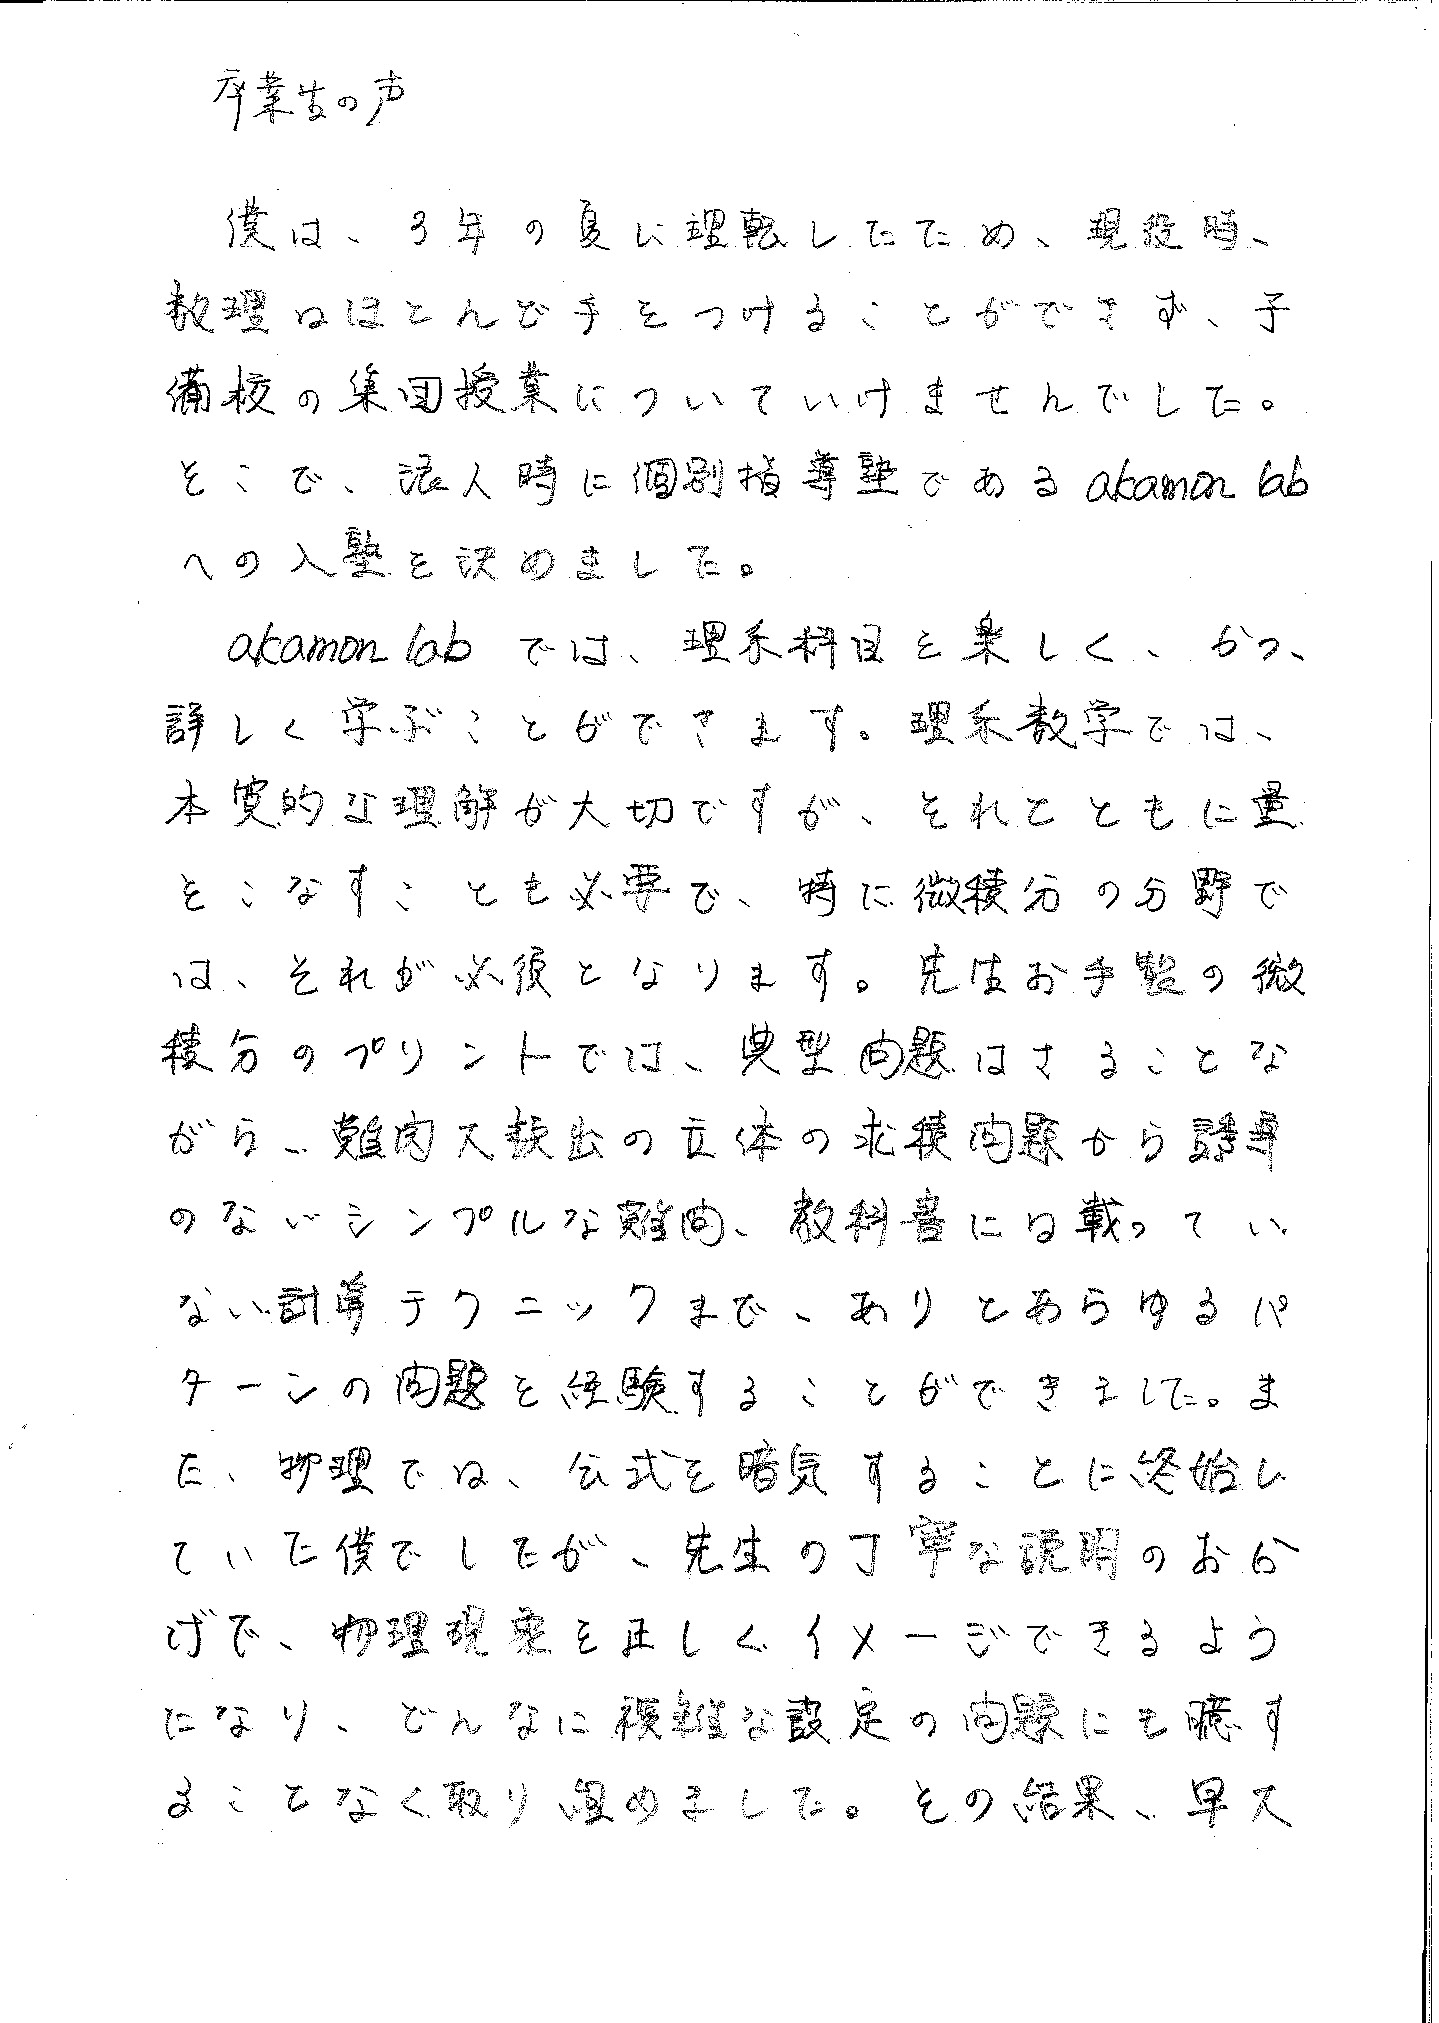 卒業生の声
僕は、3年の夏に理転したため、現役時、
数理はほとんど手をつけることができず、予
備校の集団授業についていけませんでした。
そこで、浪人時に個別指導塾であるakamon lab
への入塾を決めました。
akamon labでは、理系科目を楽しく、かつ、
詳しく学ぶことができます。理系数学では、
本質的な理解が大切ですが、それとともに量
をこなすことも必要で、特に微積分の分野で
は、それが必須となります。先生お手製の微
積分のプリントでは、典型問題はさることな
がら、難関大頻出の立体の求積問題から誘導
のないシンプルな難問、教科書には載ってい
ない計算テクニックまで、ありとあらゆるパ
ターンの問題を経験することができました。ま
た、物理では、公式を暗気することに終始し
ていた僕でしたが、先生の丁寧な説明のおか
げで、物理現象を正しくイメージできるよう
になり、どんなに複雑な設定の問題にも臆す
ることなく取り組めました。その結果、早大